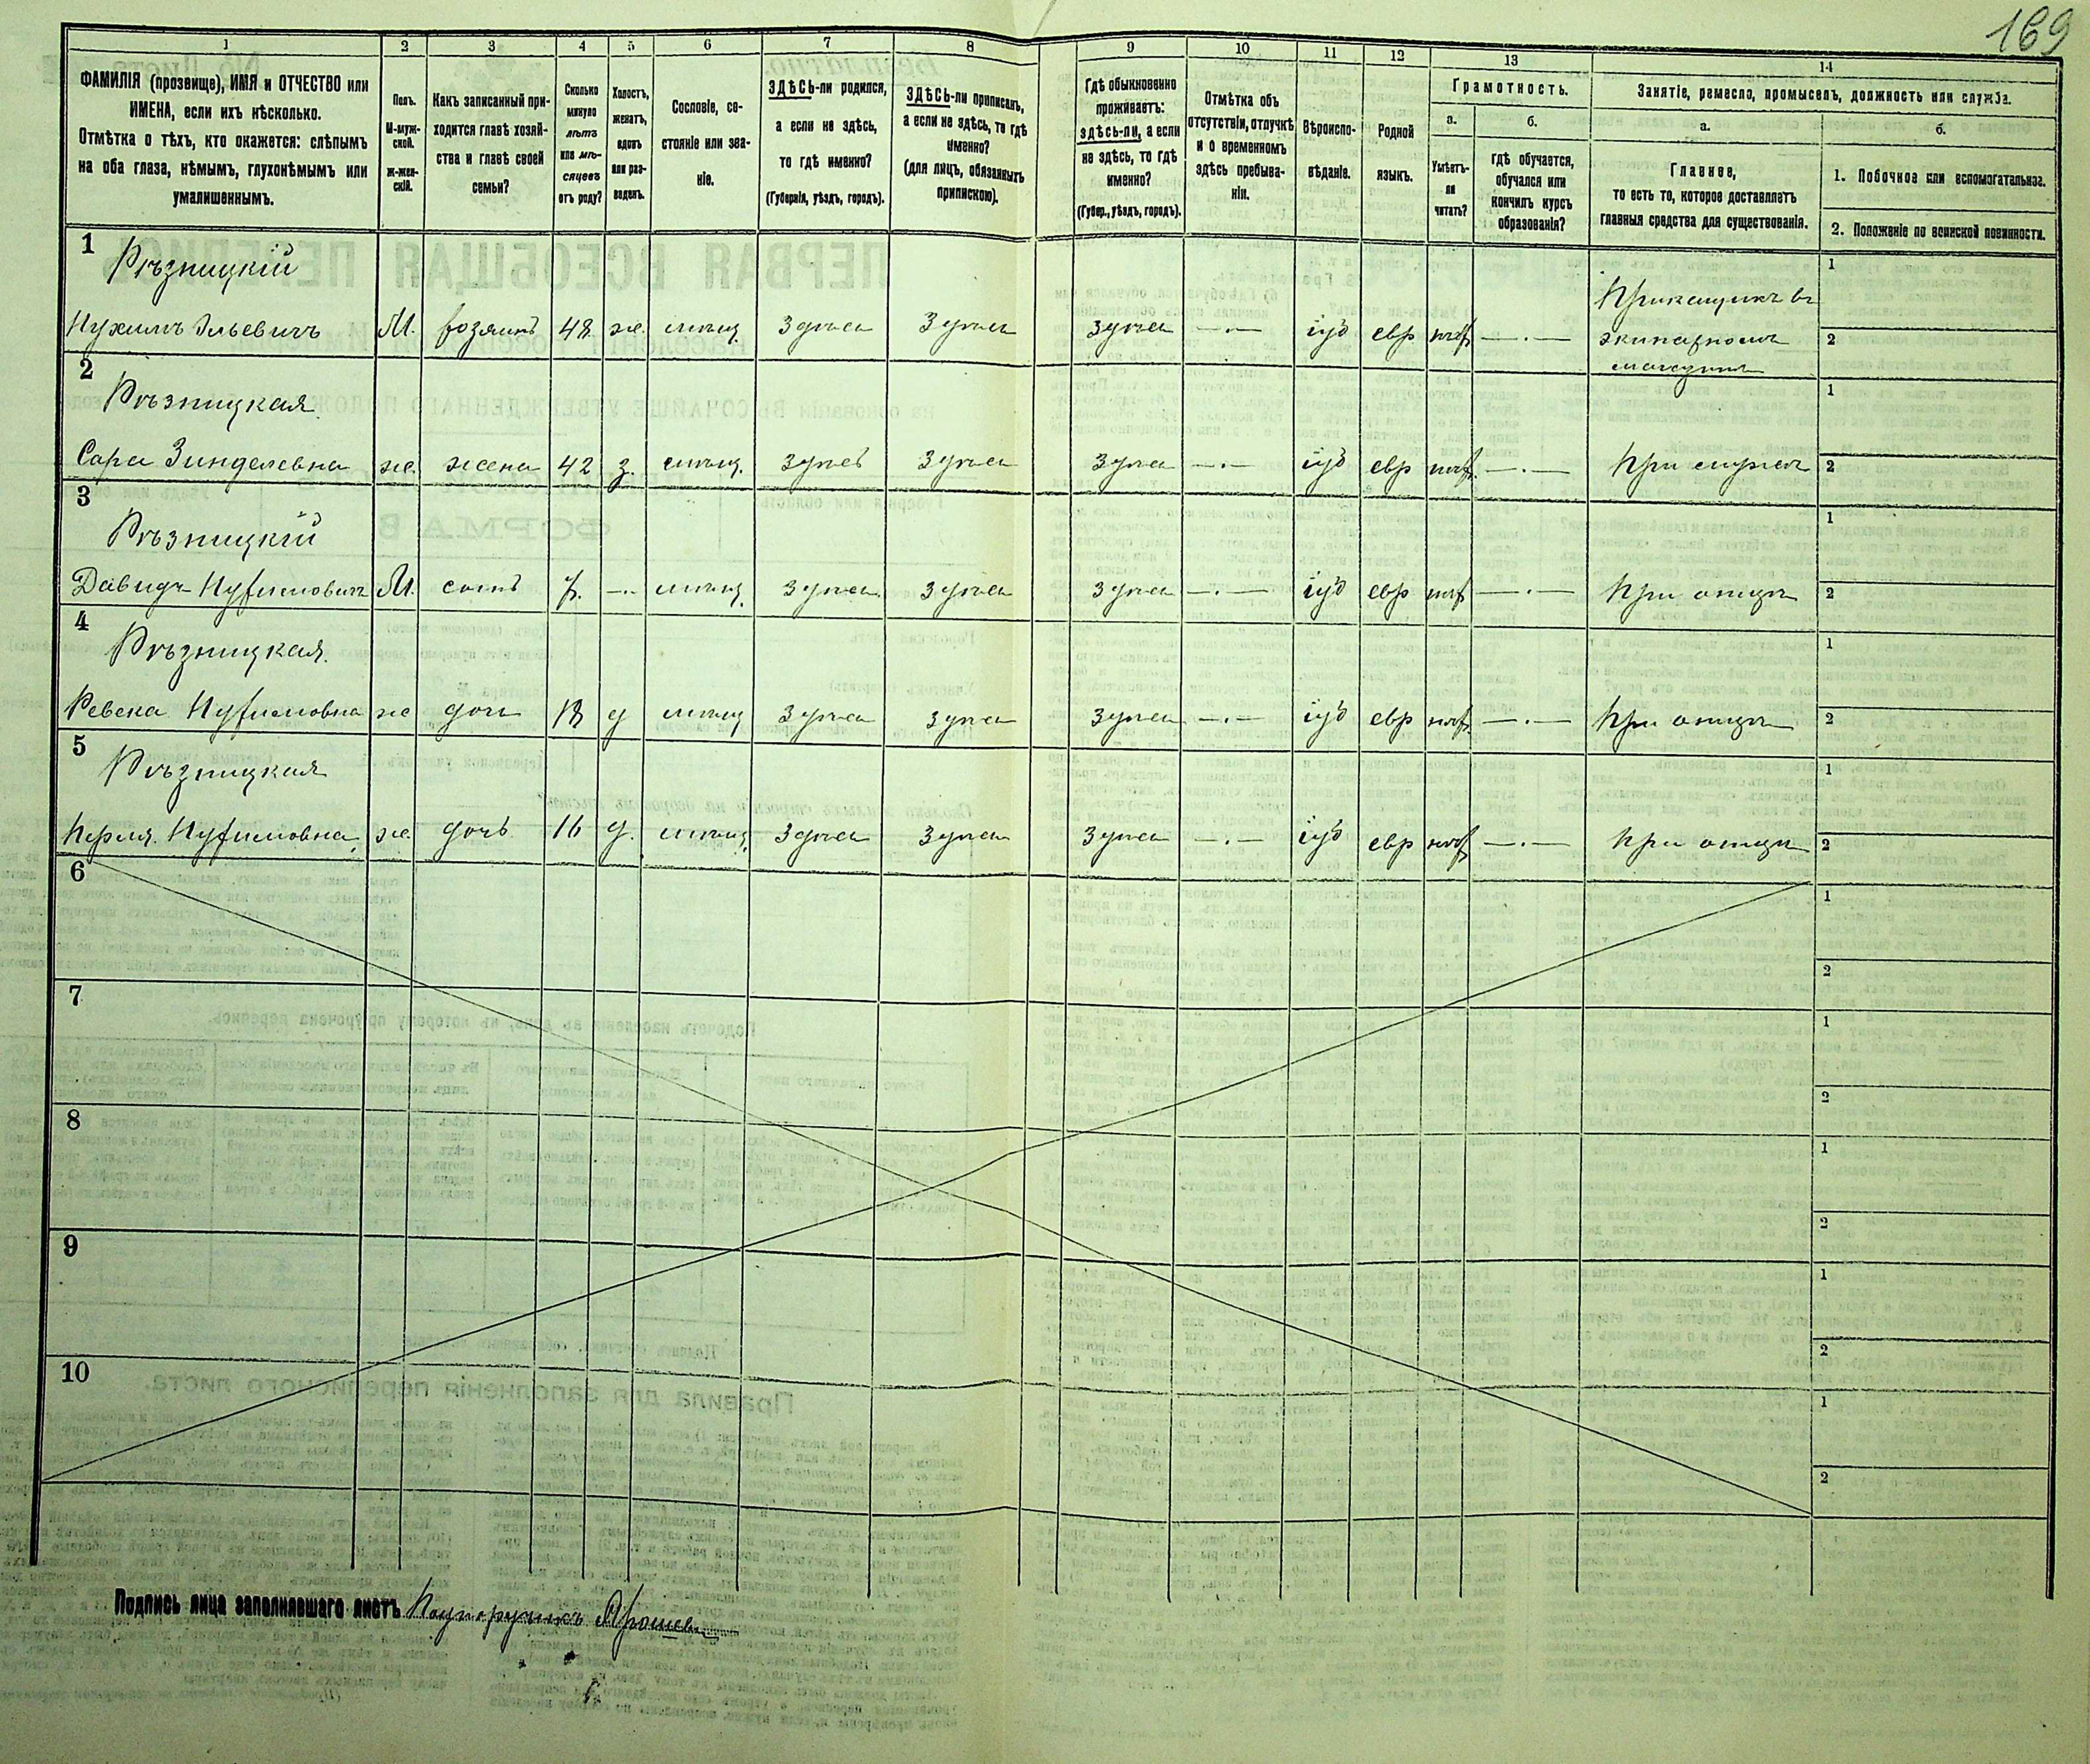 169
1 2 3 4 5 6 7 8 9 10 11 12 13 14
ФАМИЛІЯ (прозвище), ИМЯ и ОТЧЕСТВО или
ИМЕНА, если ихъ нѣсколько.
Отмѣтка о тѣхъ, кто окажется: слѣпымъ
на оба глаза, нѣмымъ, глухонѣмымъ или
умалишеннымъ.
Полъ.
М-муж-
ской.
Ж-жен-
скій.
Какъ записанный при-
ходится главѣ хозяй-
ства и главѣ своей
семьи?
Сколько
минуло
лѣтъ
или мѣ-
сяцевъ
отъ роду?
Холостъ,
женатъ,
вдовъ
или раз-
веденъ.
Сословіе, со-
стояніе или зва-
ніе.
ЗДѢСЬ-ли родился,
а если не здѣсь,
то гдѣ именно?
(Губернія, уѣздъ, городъ).
ЗДѢСЬ-ли приписанъ,
а если не здѣсь, то гдѣ
именно?
(для лицъ, обязанныхъ
припискою).
Гдѣ обыкновенно
проживаетъ:
здѣсь-ли, а если
не здѣсь, то гдѣ
именно?
(Губер., уѣздъ, городъ).
Отмѣтка объ
отсутствіи, отлучкѣ
и о временномъ
здѣсь пребыва-
ніи.
Вѣроиспо-
вѣданіе.
Родной
языкъ.
Грамотность.
а.
Умѣетъ-
ли
читать?
б.
гдѣ обучается,
обучался или
кончилъ курсъ
образованія?
Занятіе, ремесло, промыселъ, должность или служба.
а.
Главное,
то есть то, которое доставляетъ
главныя средства для существованія.
б.
1. Побочное или вспомогательное.
2. Положеніе по воинской повинности.
1
Рѣзницкій
Нухимъ Эльевичъ М. хозяинъ 48 ж. мѣщ. Здѣсь Здѣсь Здѣсь —·— іуд евр нѣт —·—
Прикащикъ въ
экипажномъ
магазинѣ
1
2
2
Рѣзницкая
Сара Зинделевна ж. жена 42 з. мѣщ. Здѣсь Здѣсь Здѣсь —·— іуд евр нѣт. —·— При мужѣ
1
2
3
Рѣзницкій
Давидъ Нухимовичъ М. сынъ 7. —·— мѣщ. Здѣсь Здѣсь Здѣсь —·— іуд евр нѣт —·— При отцѣ
1
2
4
Рѣзницкая.
Ревека Нухимовна ж дочь 18 д мѣщ Здѣсь Здѣсь Здѣсь —·— іуд евр нѣт. —·— При отцѣ
1
2
5
Рѣзницкая
Перля. Нухимовна. ж. дочь 16 д. мѣщ. Здѣсь Здѣсь Здѣсь —·— іуд евр нѣт —·— При отцѣ
2
6
1
2
7
1
2
8
1
2
9
1
2
10
1
2
Подпись лица заполнявшаго листъ Подпоручикъ